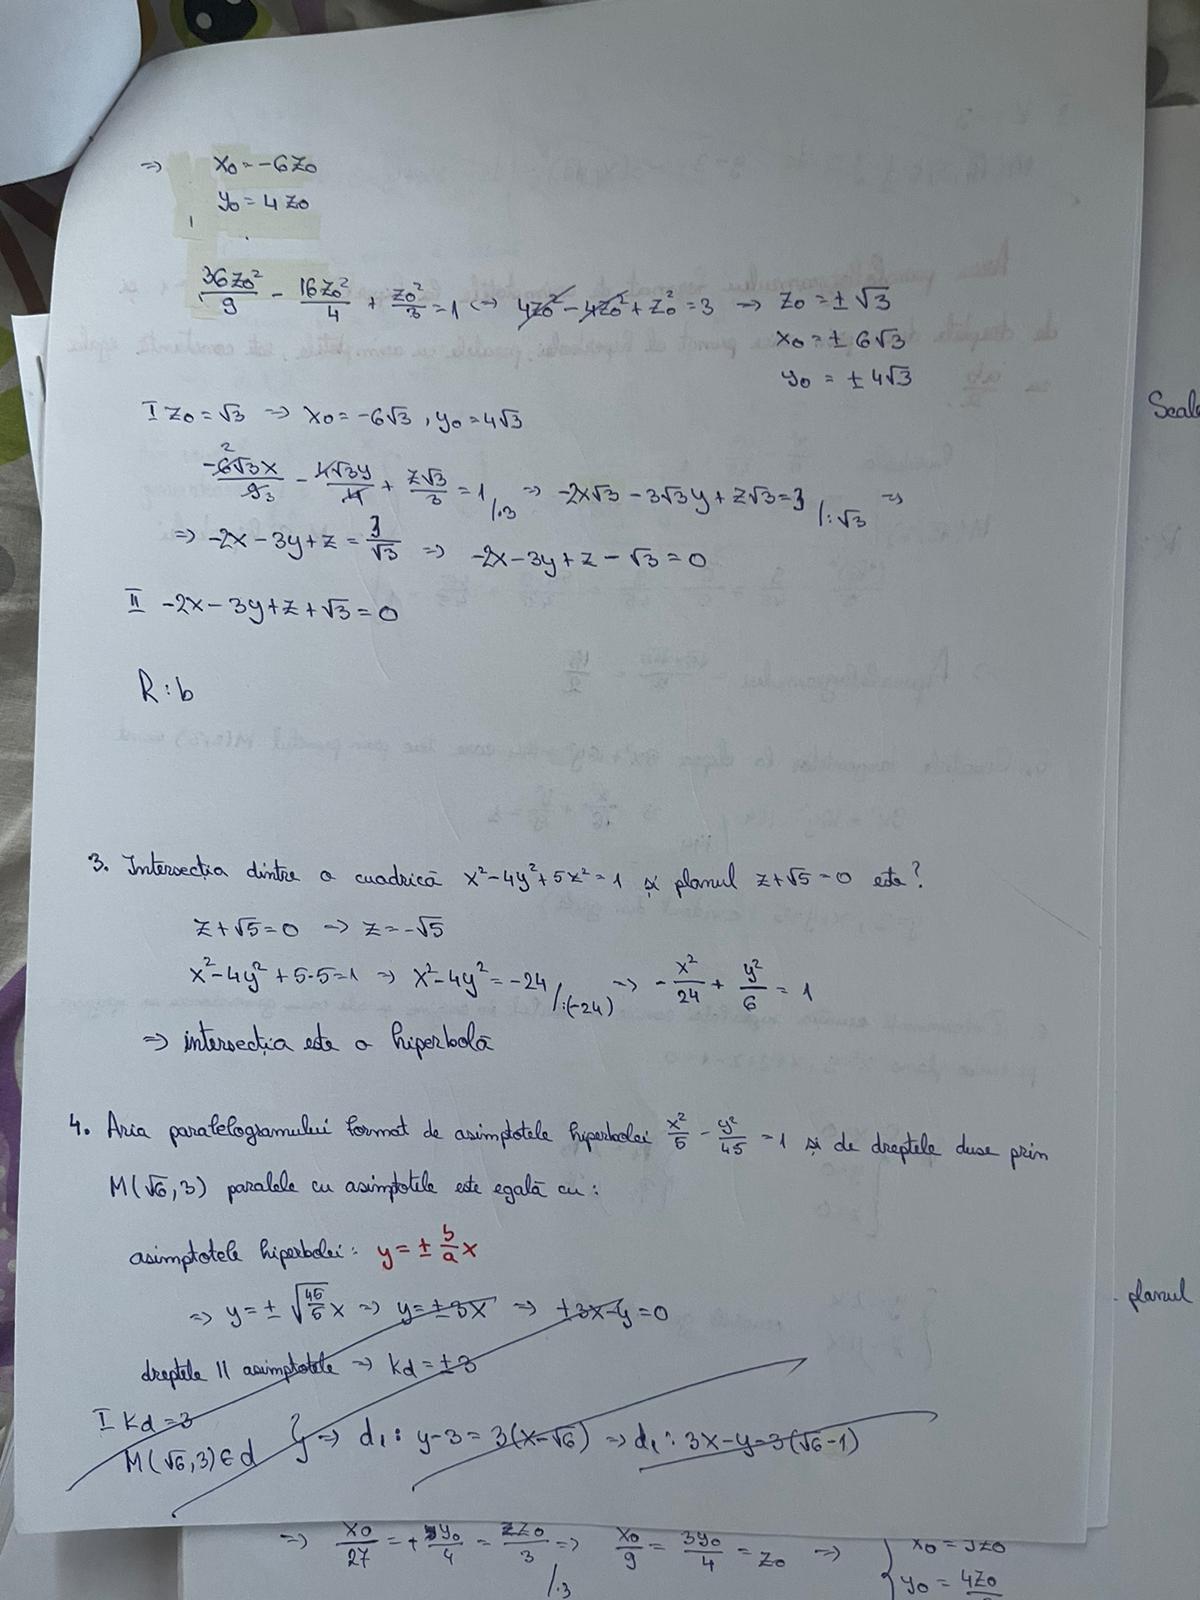 => x₀ = -6z₀
y₀ = 4z₀
36z₀²/9 - 16z₀²/4 + z₀²/3 = 1 <=> 4z₀² - 4z₀² + z₀² = 3 => z₀ = ± √3
x₀ = ± 6√3
y₀ = ± 4√3
I z₀ = √3 => x₀ = -6√3, y₀ = 4√3
-6√3x/9 - 4√3y/4 + z√3/3 = 1 /·3 => -2x√3 - 3√3y + z√3 = 3 /:√3 =>
=> -2x - 3y + z = 3/√3 => -2x - 3y + z - √3 = 0
II -2x - 3y + z + √3 = 0
R: b
3. Intersecția dintre o cuadrică x² - 4y² + 5z² = 1 și planul z + √5 = 0 este?
z + √5 = 0 => z = -√5
x² - 4y² + 5·5 = 1 => x² - 4y² = -24 /:(-24) => -x²/24 + y²/6 = 1
=> intersecția este o hiperbolă
4. Aria paralelogramului format de asimptotele hiperbolei x²/5 - y²/45 = 1 și de dreptele duse prin
M(√6, 3) paralele cu asimptotele este egală cu:
asimptotele hiperbolei: y = ± b/a x
=> y = ± √(45/5) x => y = ±3x => ±3x - y = 0
dreptele || asimptotele => kd = ±3
I kd = 3
M(√6, 3) ∈ d } => d₁: y - 3 = 3(x - √6) => d₁: 3x - y = 3(√6 - 1)
=> x₀/27 = + 3y₀/4 = z₀/3 /·3 => x₀/9 = 3y₀/4 = z₀ => { x₀ = 9z₀
y₀ = 4z₀
Scale
planul